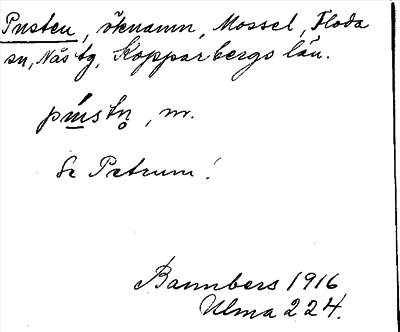 Pusten, öknamn, Mossel, Floda
sn, Nås tg, Kopparbergs län.
, m.
Se Petrum!
Bannbers 1916
Ulma 224.